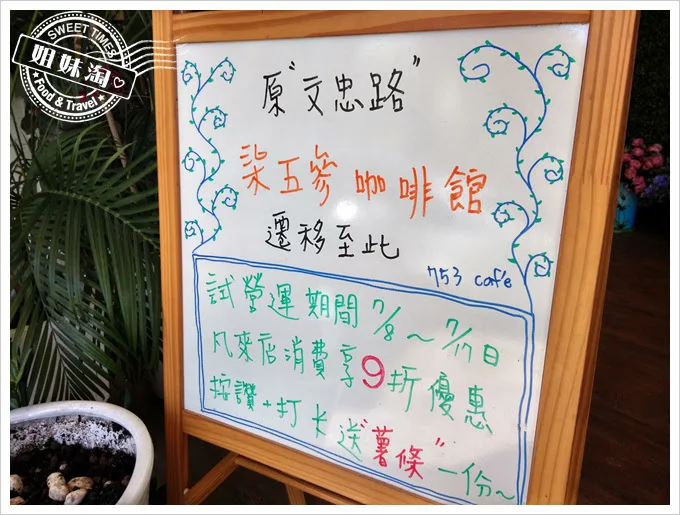 SWEET TIMES
姐妹淘
Food & Travel
原"文忠路"
柒五參咖啡館
遷移至此
753 cafe
試營運期間7/8～7/17日
凡來店消費享9折優惠
按讚+打卡送"薯條"一份～